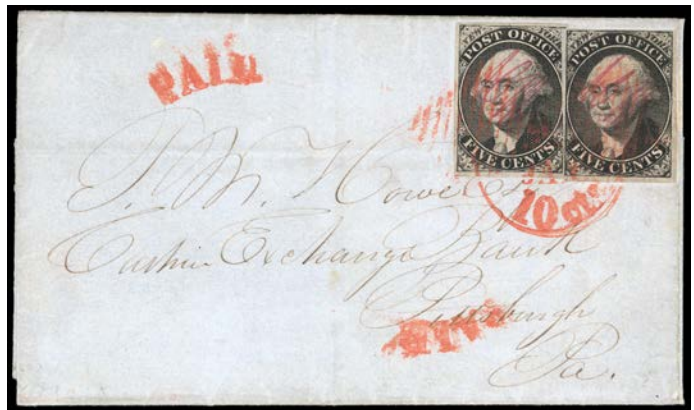 PAID
POST OFFICE
FIVE CENTS
POST OFFICE
FIVE CENTS
10 cts
T. M. Howe Esq
Cashier Exchange Bank
Pittsburgh
Pa.
PAID